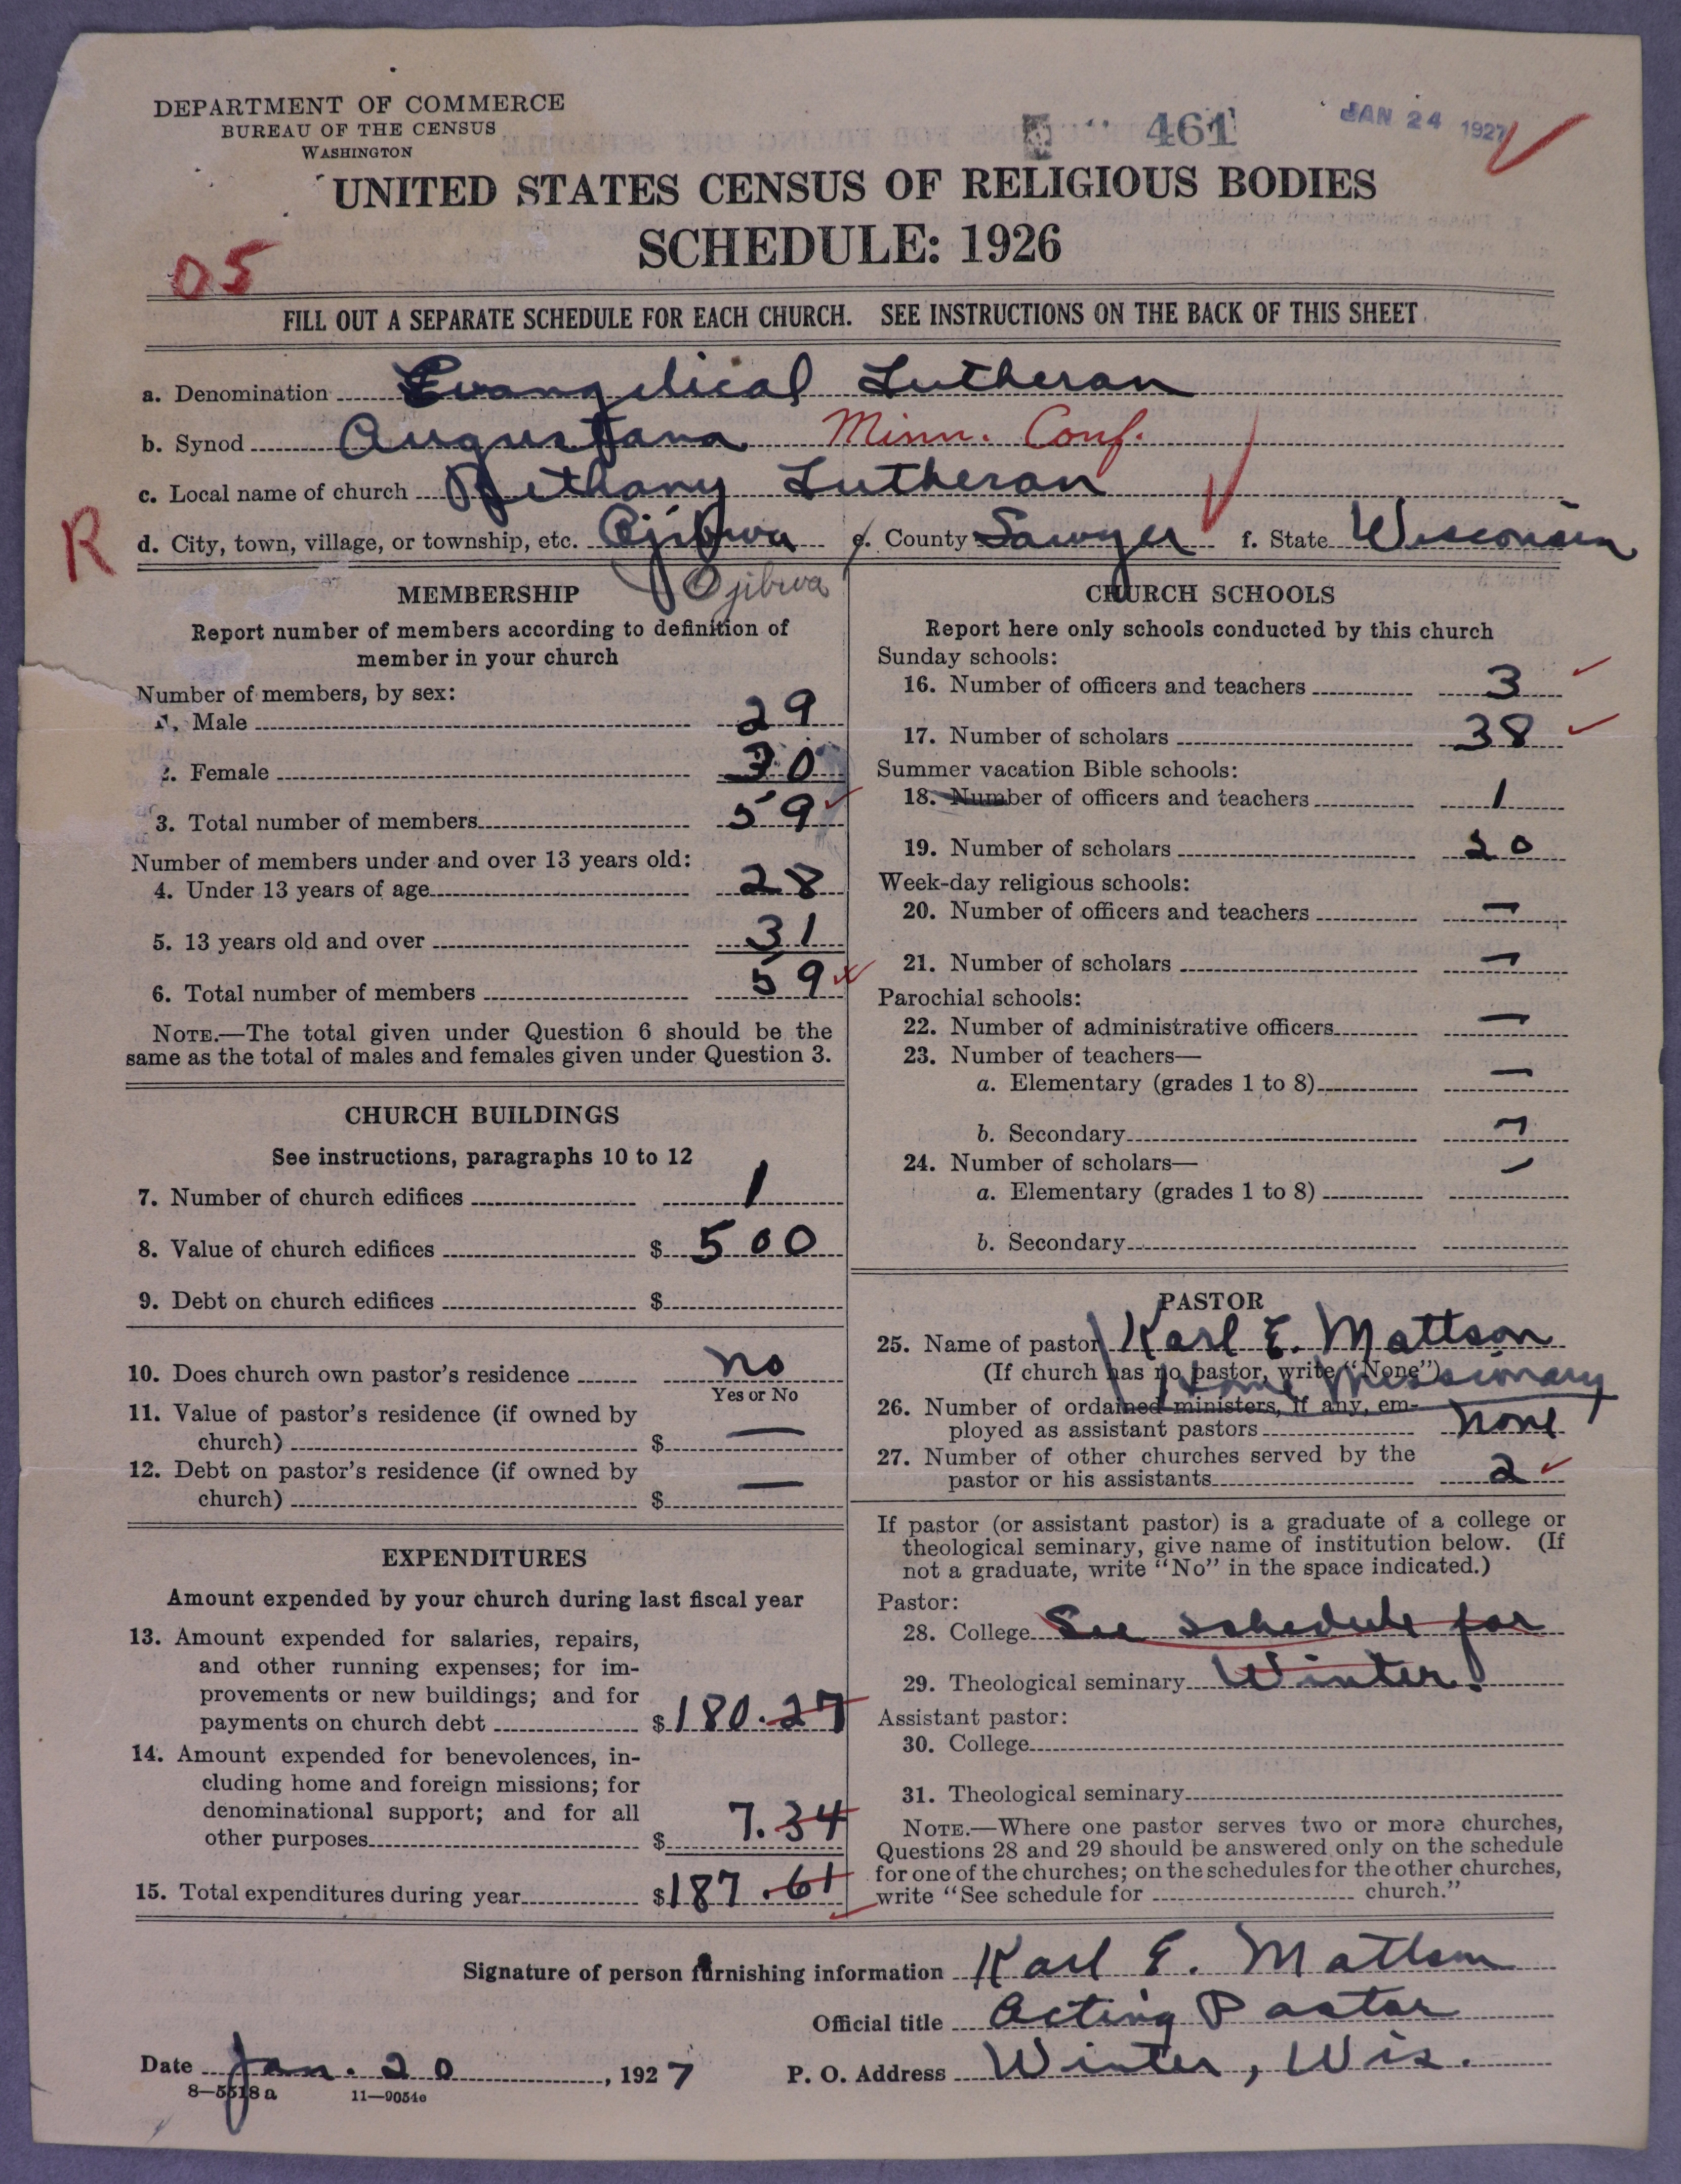 DEPARTMENT OF COMMERCE
BUREAU OF THE CENSUS
WASHINGTON
461
JAN 24 1927
UNITED STATES CENSUS OF RELIGIOUS BODIES
SCHEDULE: 1926
05
FILL OUT A SEPARATE SCHEDULE FOR EACH CHURCH. SEE INSTRUCTIONS ON THE BACK OF THIS SHEET
a. Denomination Evangelical Lutheran
b. Synod Augustana Minn. Conf.
c. Local name of church Bethany Lutheran
R
d. City, town, village, or township, etc. Ojibwa e. County Sawyer f. State Wisconsin
Ojibwa
MEMBERSHIP
Report number of members according to definition of
member in your church
Number of members, by sex:
1. Male 29
2. Female 30
3. Total number of members 59
Number of members under and over 13 years old:
4. Under 13 years of age 28
5. 13 years old and over 31
6. Total number of members 59
NOTE.—The total given under Question 6 should be the
same as the total of males and females given under Question 3.
CHURCH BUILDINGS
See instructions, paragraphs 10 to 12
7. Number of church edifices 1
8. Value of church edifices $ 500
9. Debt on church edifices $
10. Does church own pastor's residence no
Yes or No
11. Value of pastor's residence (if owned by
church) $ —
12. Debt on pastor's residence (if owned by
church) $ —
EXPENDITURES
Amount expended by your church during last fiscal year
13. Amount expended for salaries, repairs,
and other running expenses; for im-
provements or new buildings; and for
payments on church debt $ 180.27
14. Amount expended for benevolences, in-
cluding home and foreign missions; for
denominational support; and for all
other purposes $ 7.34
15. Total expenditures during year $ 187.61
CHURCH SCHOOLS
Report here only schools conducted by this church
Sunday schools:
16. Number of officers and teachers 3
17. Number of scholars 38
Summer vacation Bible schools:
18. Number of officers and teachers 1
19. Number of scholars 20
Week-day religious schools:
20. Number of officers and teachers —
21. Number of scholars —
Parochial schools:
22. Number of administrative officers —
23. Number of teachers—
a. Elementary (grades 1 to 8) —
b. Secondary —
24. Number of scholars— —
a. Elementary (grades 1 to 8)
b. Secondary
PASTOR
25. Name of pastor Karl E. Mattson
(If church has no pastor, write "None")
Home Missionary
26. Number of ordained ministers, if any, em-
ployed as assistant pastors none
27. Number of other churches served by the
pastor or his assistants 2
If pastor (or assistant pastor) is a graduate of a college or
theological seminary, give name of institution below. (If
not a graduate, write "No" in the space indicated.)
Pastor:
28. College See schedule for
29. Theological seminary Winter.
Assistant pastor:
30. College
31. Theological seminary
NOTE.—Where one pastor serves two or more churches,
Questions 28 and 29 should be answered only on the schedule
for one of the churches; on the schedules for the other churches,
write "See schedule for church."
Signature of person furnishing information Karl E. Mattson
Official title Acting Pastor
Date Jan. 20, 1927 P. O. Address Winter, Wis.
8—5518a 11—9054c